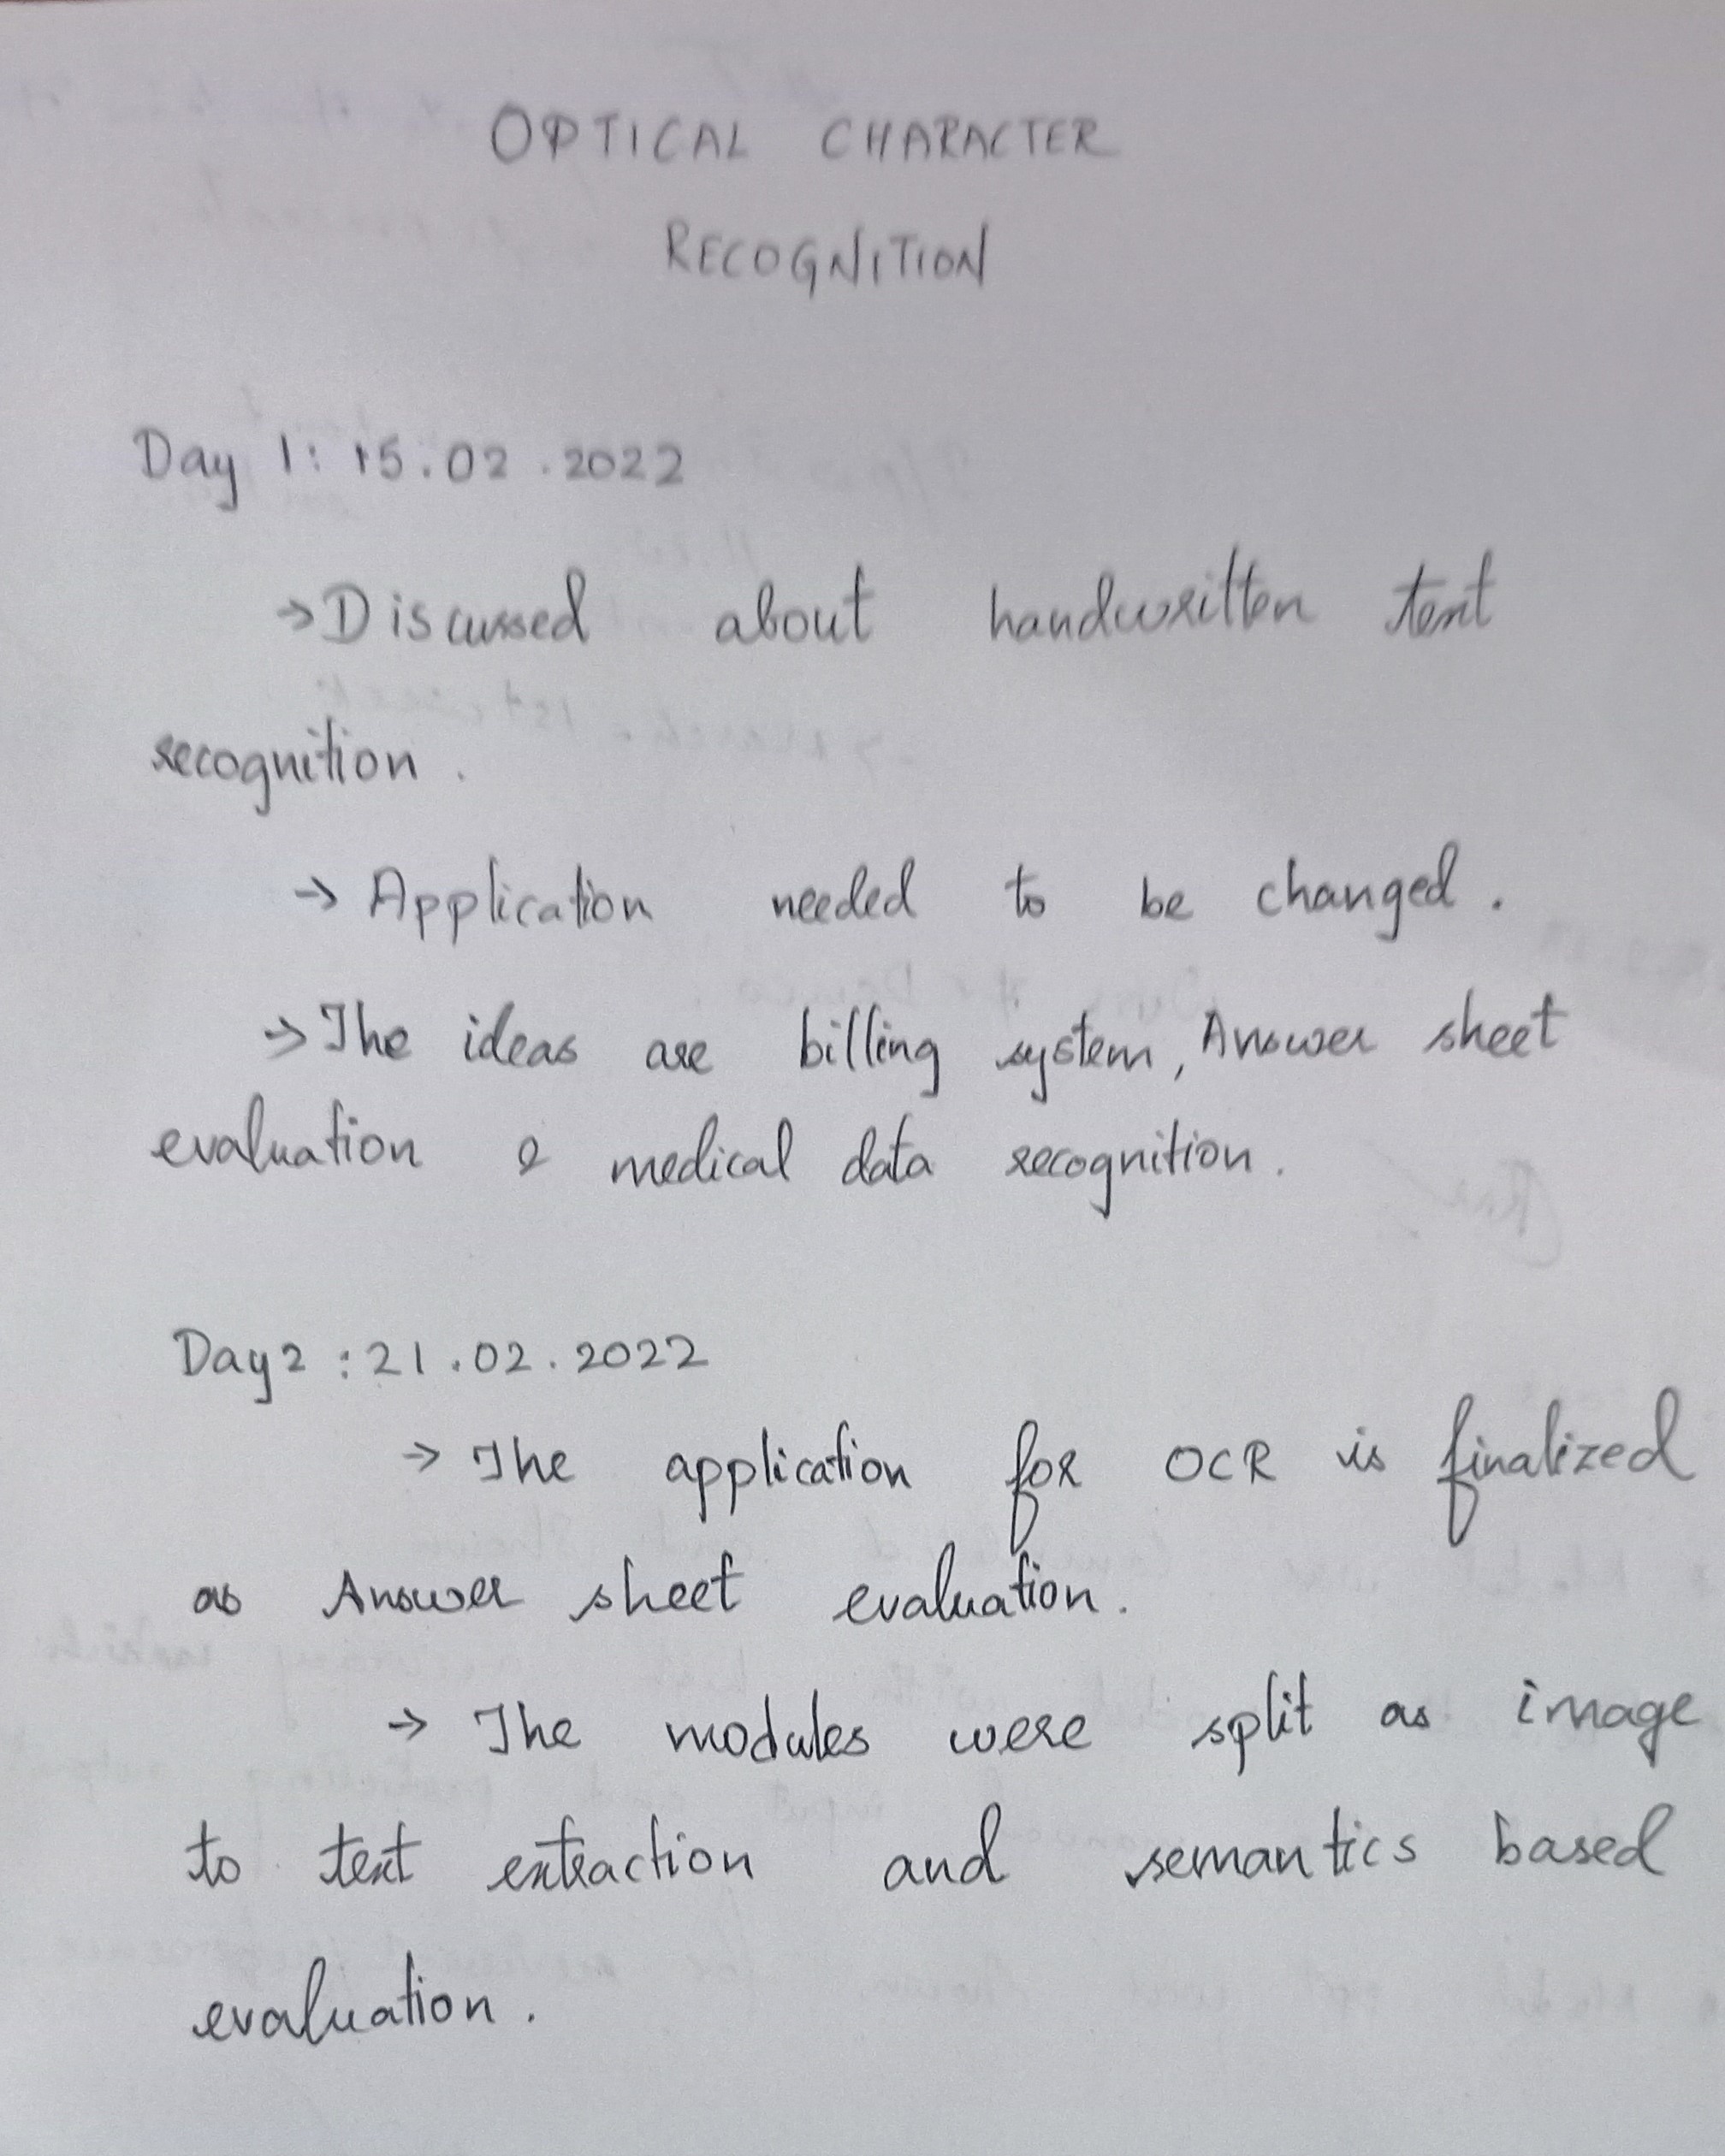 OPTICAL CHARACTER
RECOGNITION
Day 1: 15.02.2022
→ Discussed about handwritten text
recognition.
→ Application needed to be changed.
→ The ideas are billing system, Answer sheet
evaluation & medical data recognition.
Day 2 : 21.02.2022
→ The application for OCR is finalized
as Answer sheet evaluation.
→ The modules were split as image
to text extraction and semantics based
evaluation.